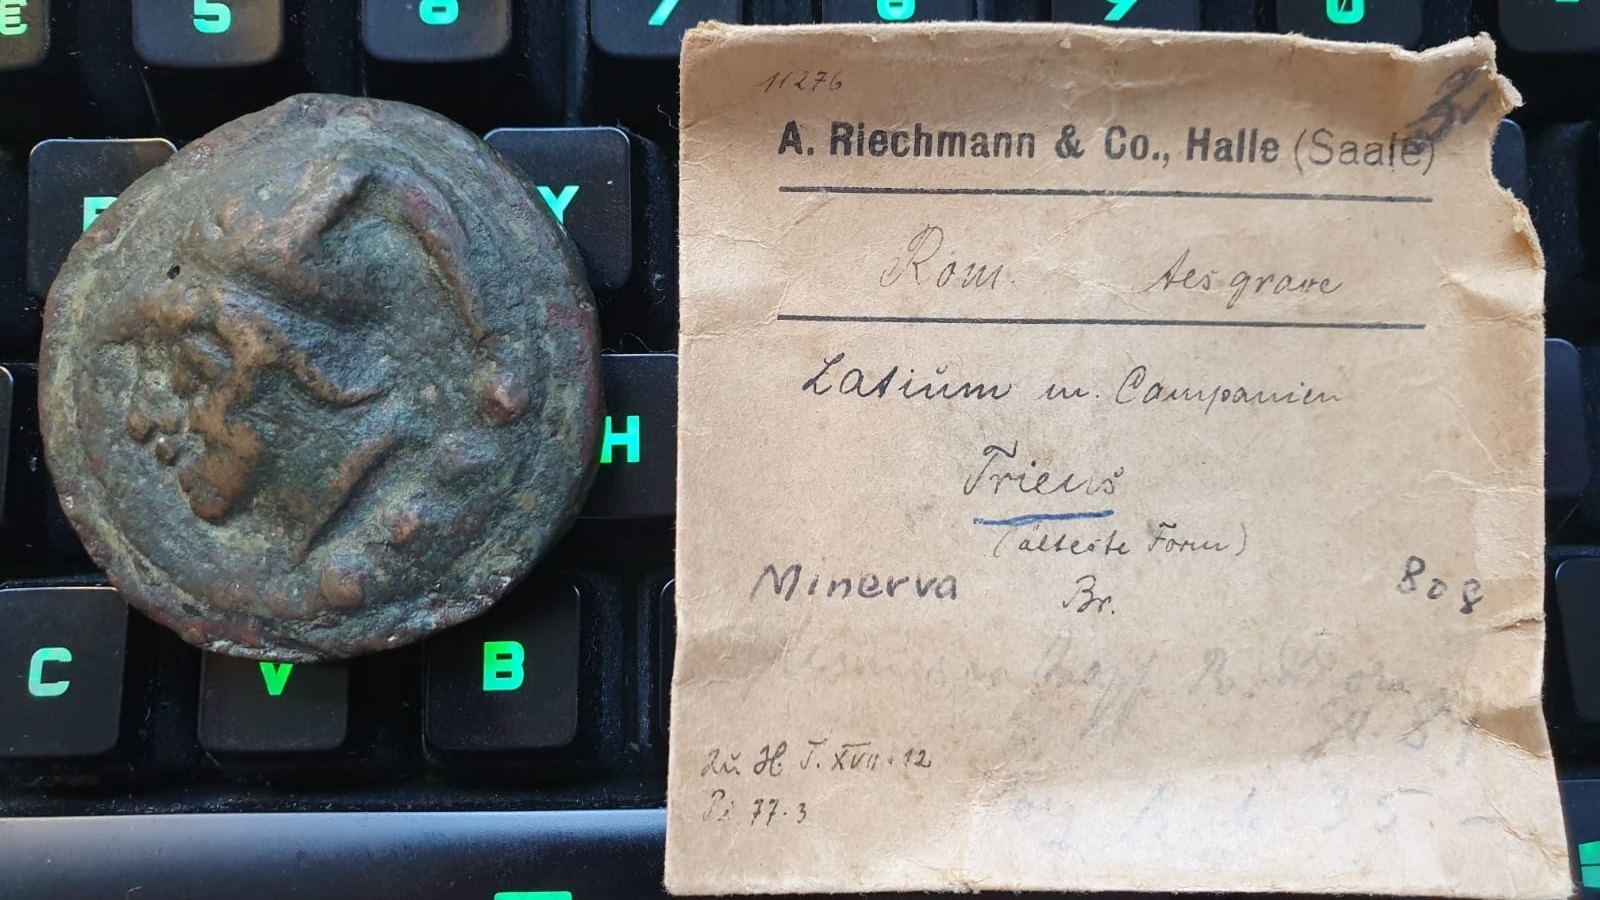 € 5 6 7 8 9 0
Y
H
C V B
11276
A. Riechmann & Co., Halle (Saale)
Rom. Aes grave
Latium u. Campanien
Triens
(älteste Form)
Minerva Br. 808
zu H. T. XVII. 12
77.3
35.-